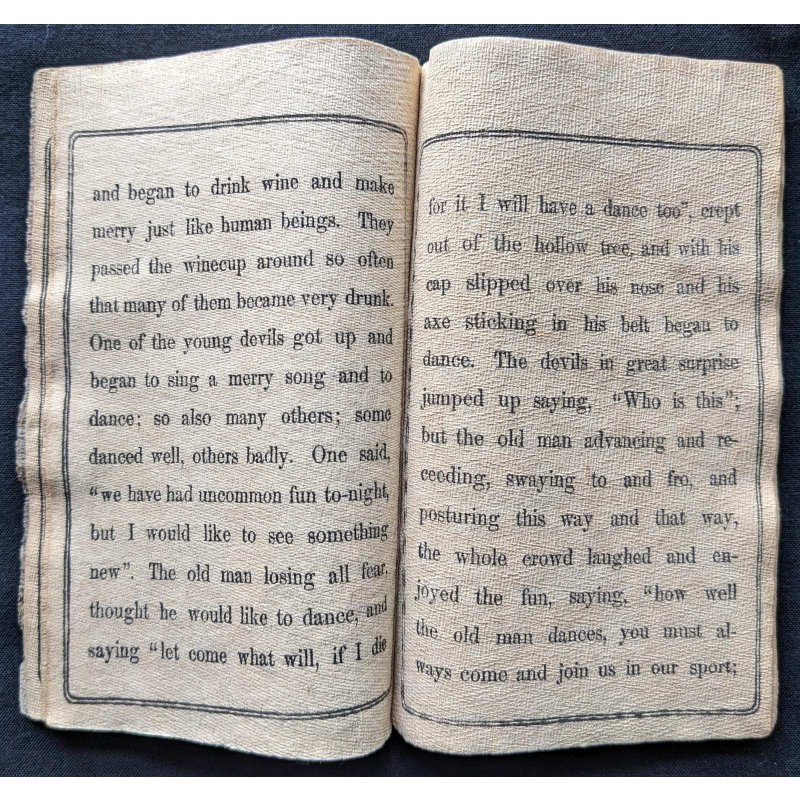 and began to drink wine and make
merry just like human beings. They
passed the winecup around so often
that many of them became very drunk.
One of the young devils got up and
began to sing a merry song and to
dance; so also many others; some
danced well, others badly. One said,
"we have had uncommon fun to-night,
but I would like to see something
new". The old man losing all fear,
thought he would like to dance, and
saying "let come what will, if I die
for it I will have a dance too", crept
out of the hollow tree, and with his
cap slipped over his nose and his
axe sticking in his belt began to
dance. The devils in great surprise
jumped up saying, "Who is this";
but the old man advancing and re-
ceeding, swaying to and fro, and
posturing this way and that way,
the whole crowd laughed and en-
joyed the fun, saying, "how well
the old man dances, you must al-
ways come and join us in our sport;